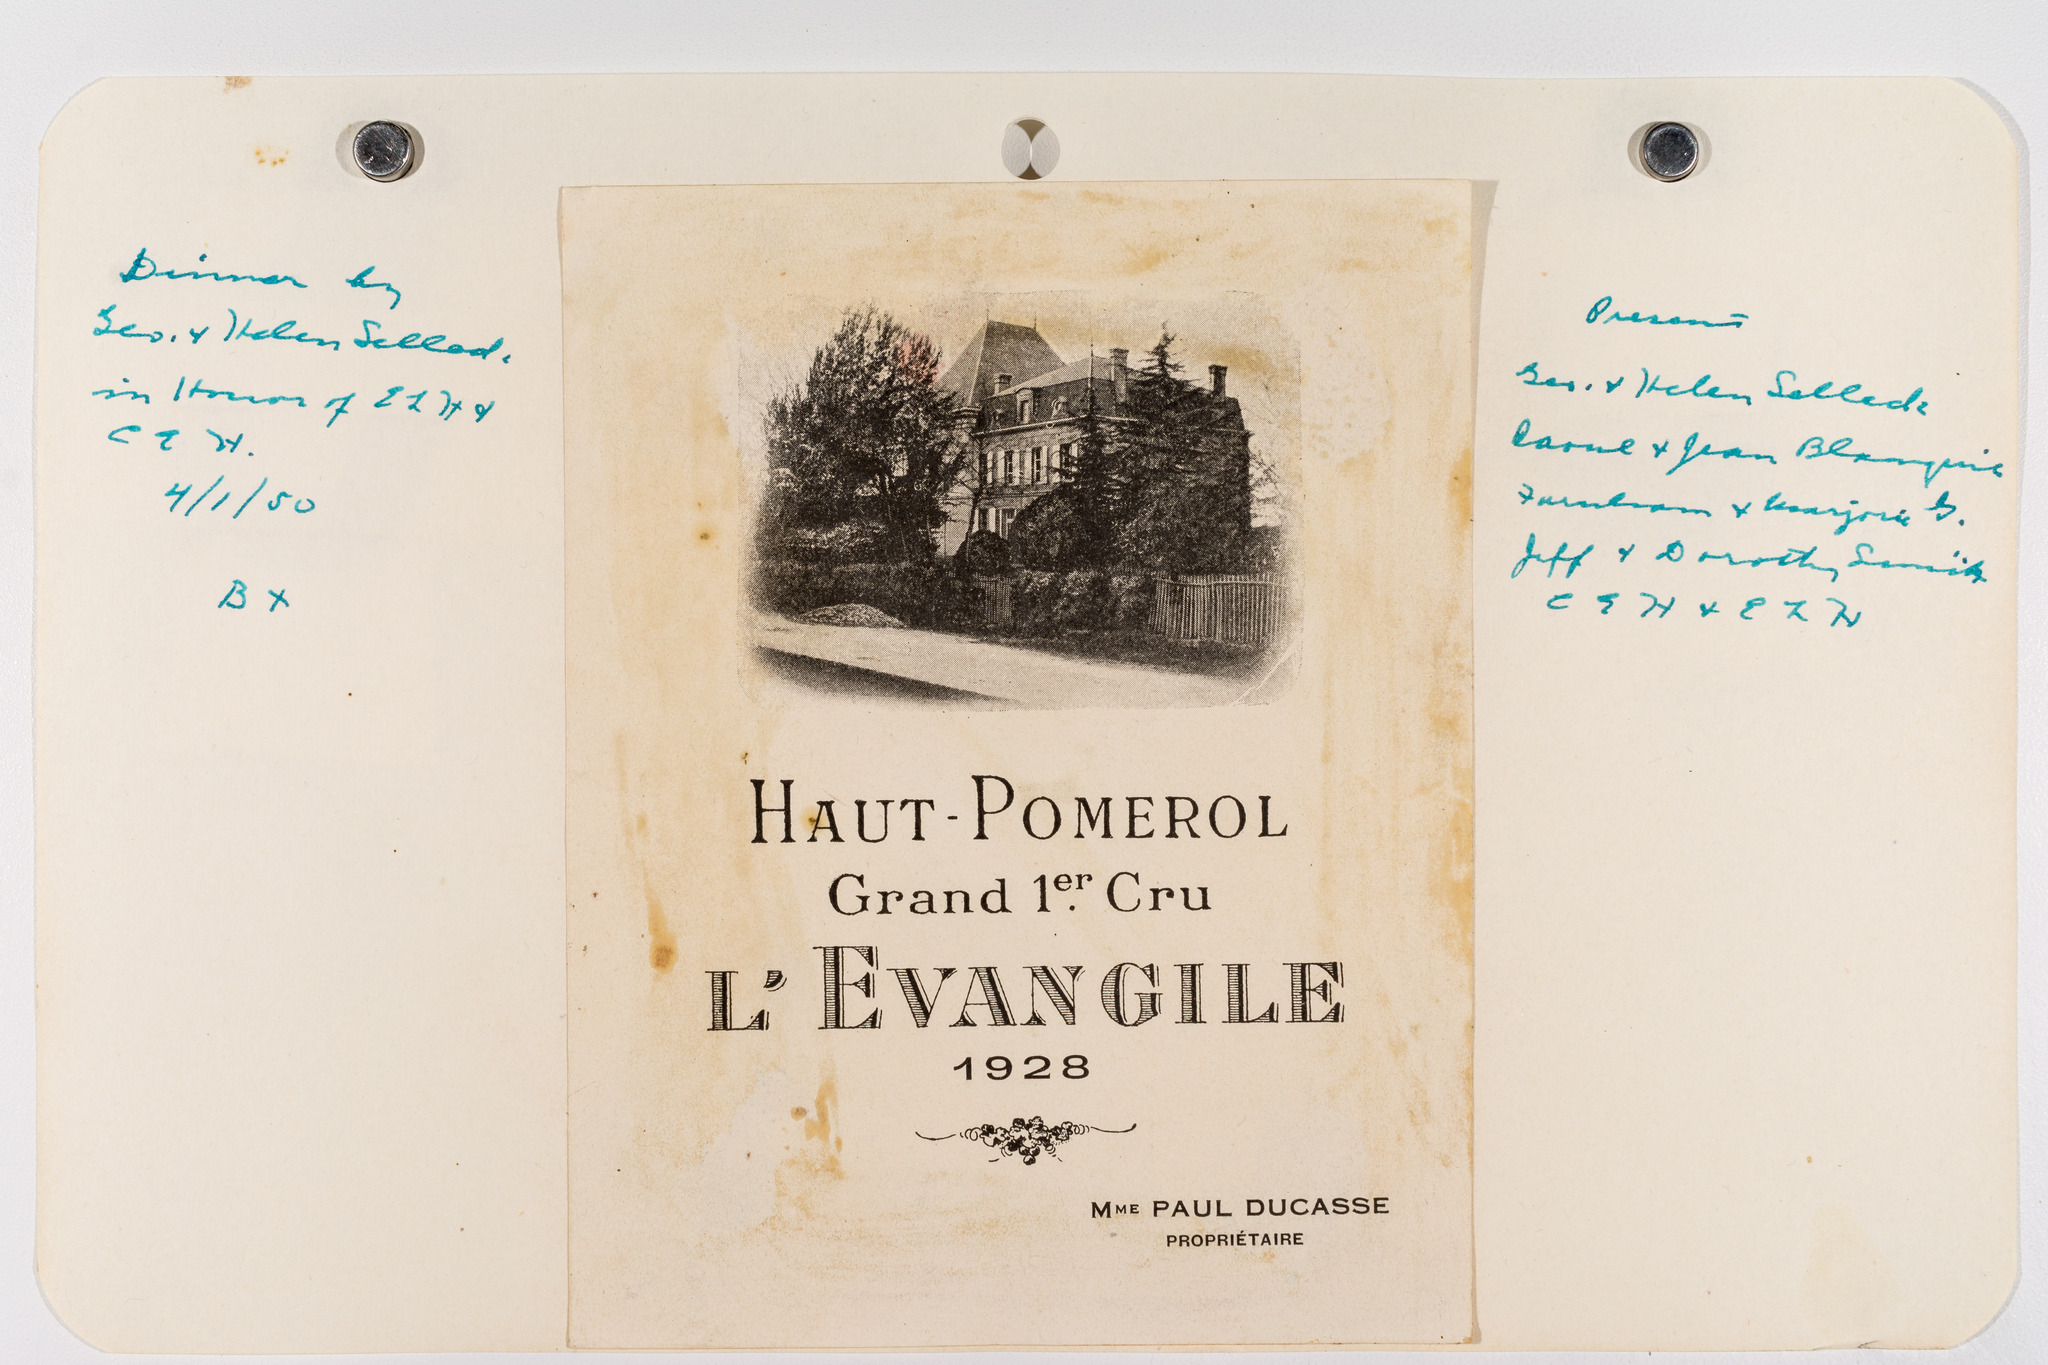 Dinner by
Geo. & Helen Selleck
in Honor of E L H &
C E H.
4/1/50
B +
HAUT-POMEROL
Grand 1er. Cru
L'EVANGILE
1928
MME PAUL DUCASSE
PROPRIÉTAIRE
Present
Geo. & Helen Selleck
Raoul & Jean Blanquie
& Marjorie G.
Jeff & Dorothy Smith
C E H & E L H